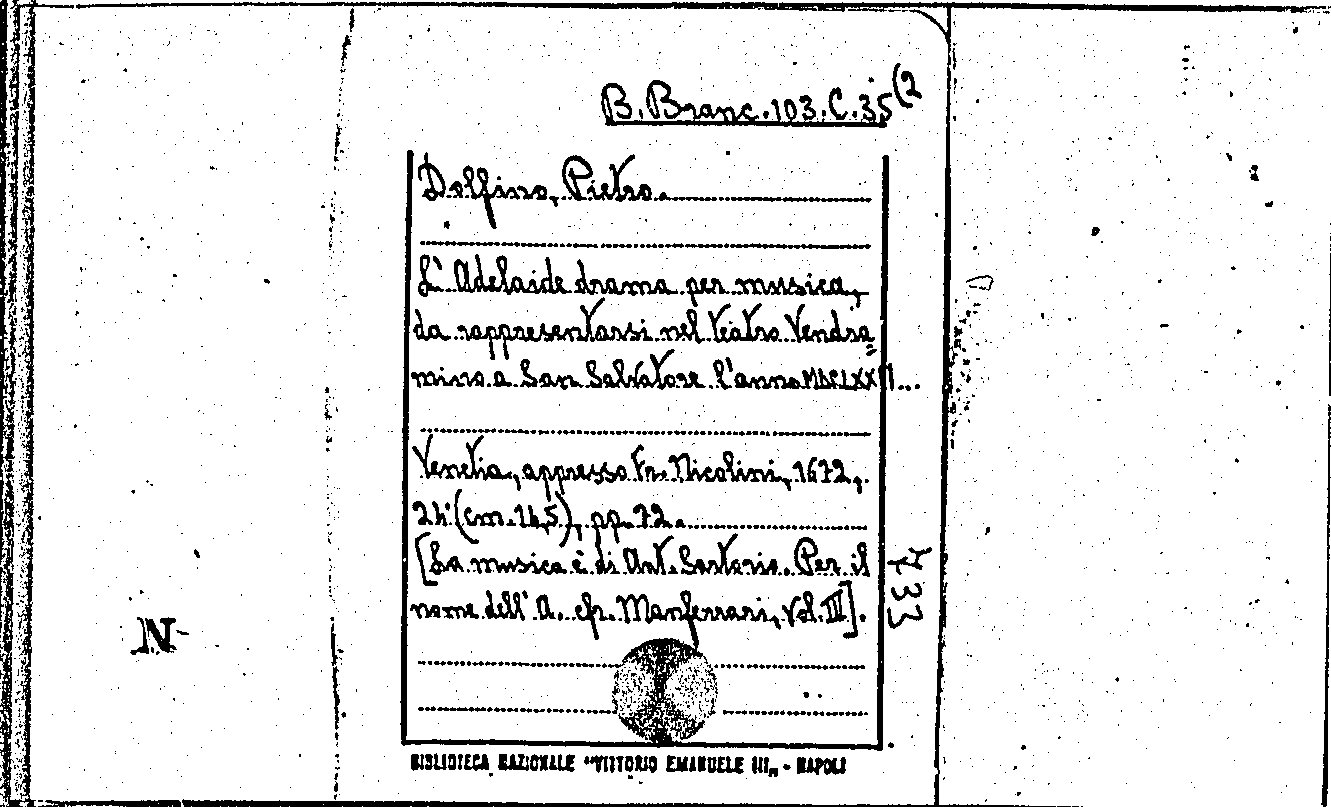 B. Branc. 103. C. 35(2
Dolfino, Pietro.
L'Adelaide drama per musica,
da rappresentarsi nel teatro Vendra=
mino a San Salvatore l'anno MDCLXXII...
Venetia, appresso Fr. Nicolini, 1672,
24°(cm. 14,5), pp. 72.
[La musica è di Ant. Sartorio. Per il
nome dell'A. cfr. Manferrari, Vol. III].
733
N
BIBLIOTECA NAZIONALE "VITTORIO EMANUELE III„ - NAPOLI